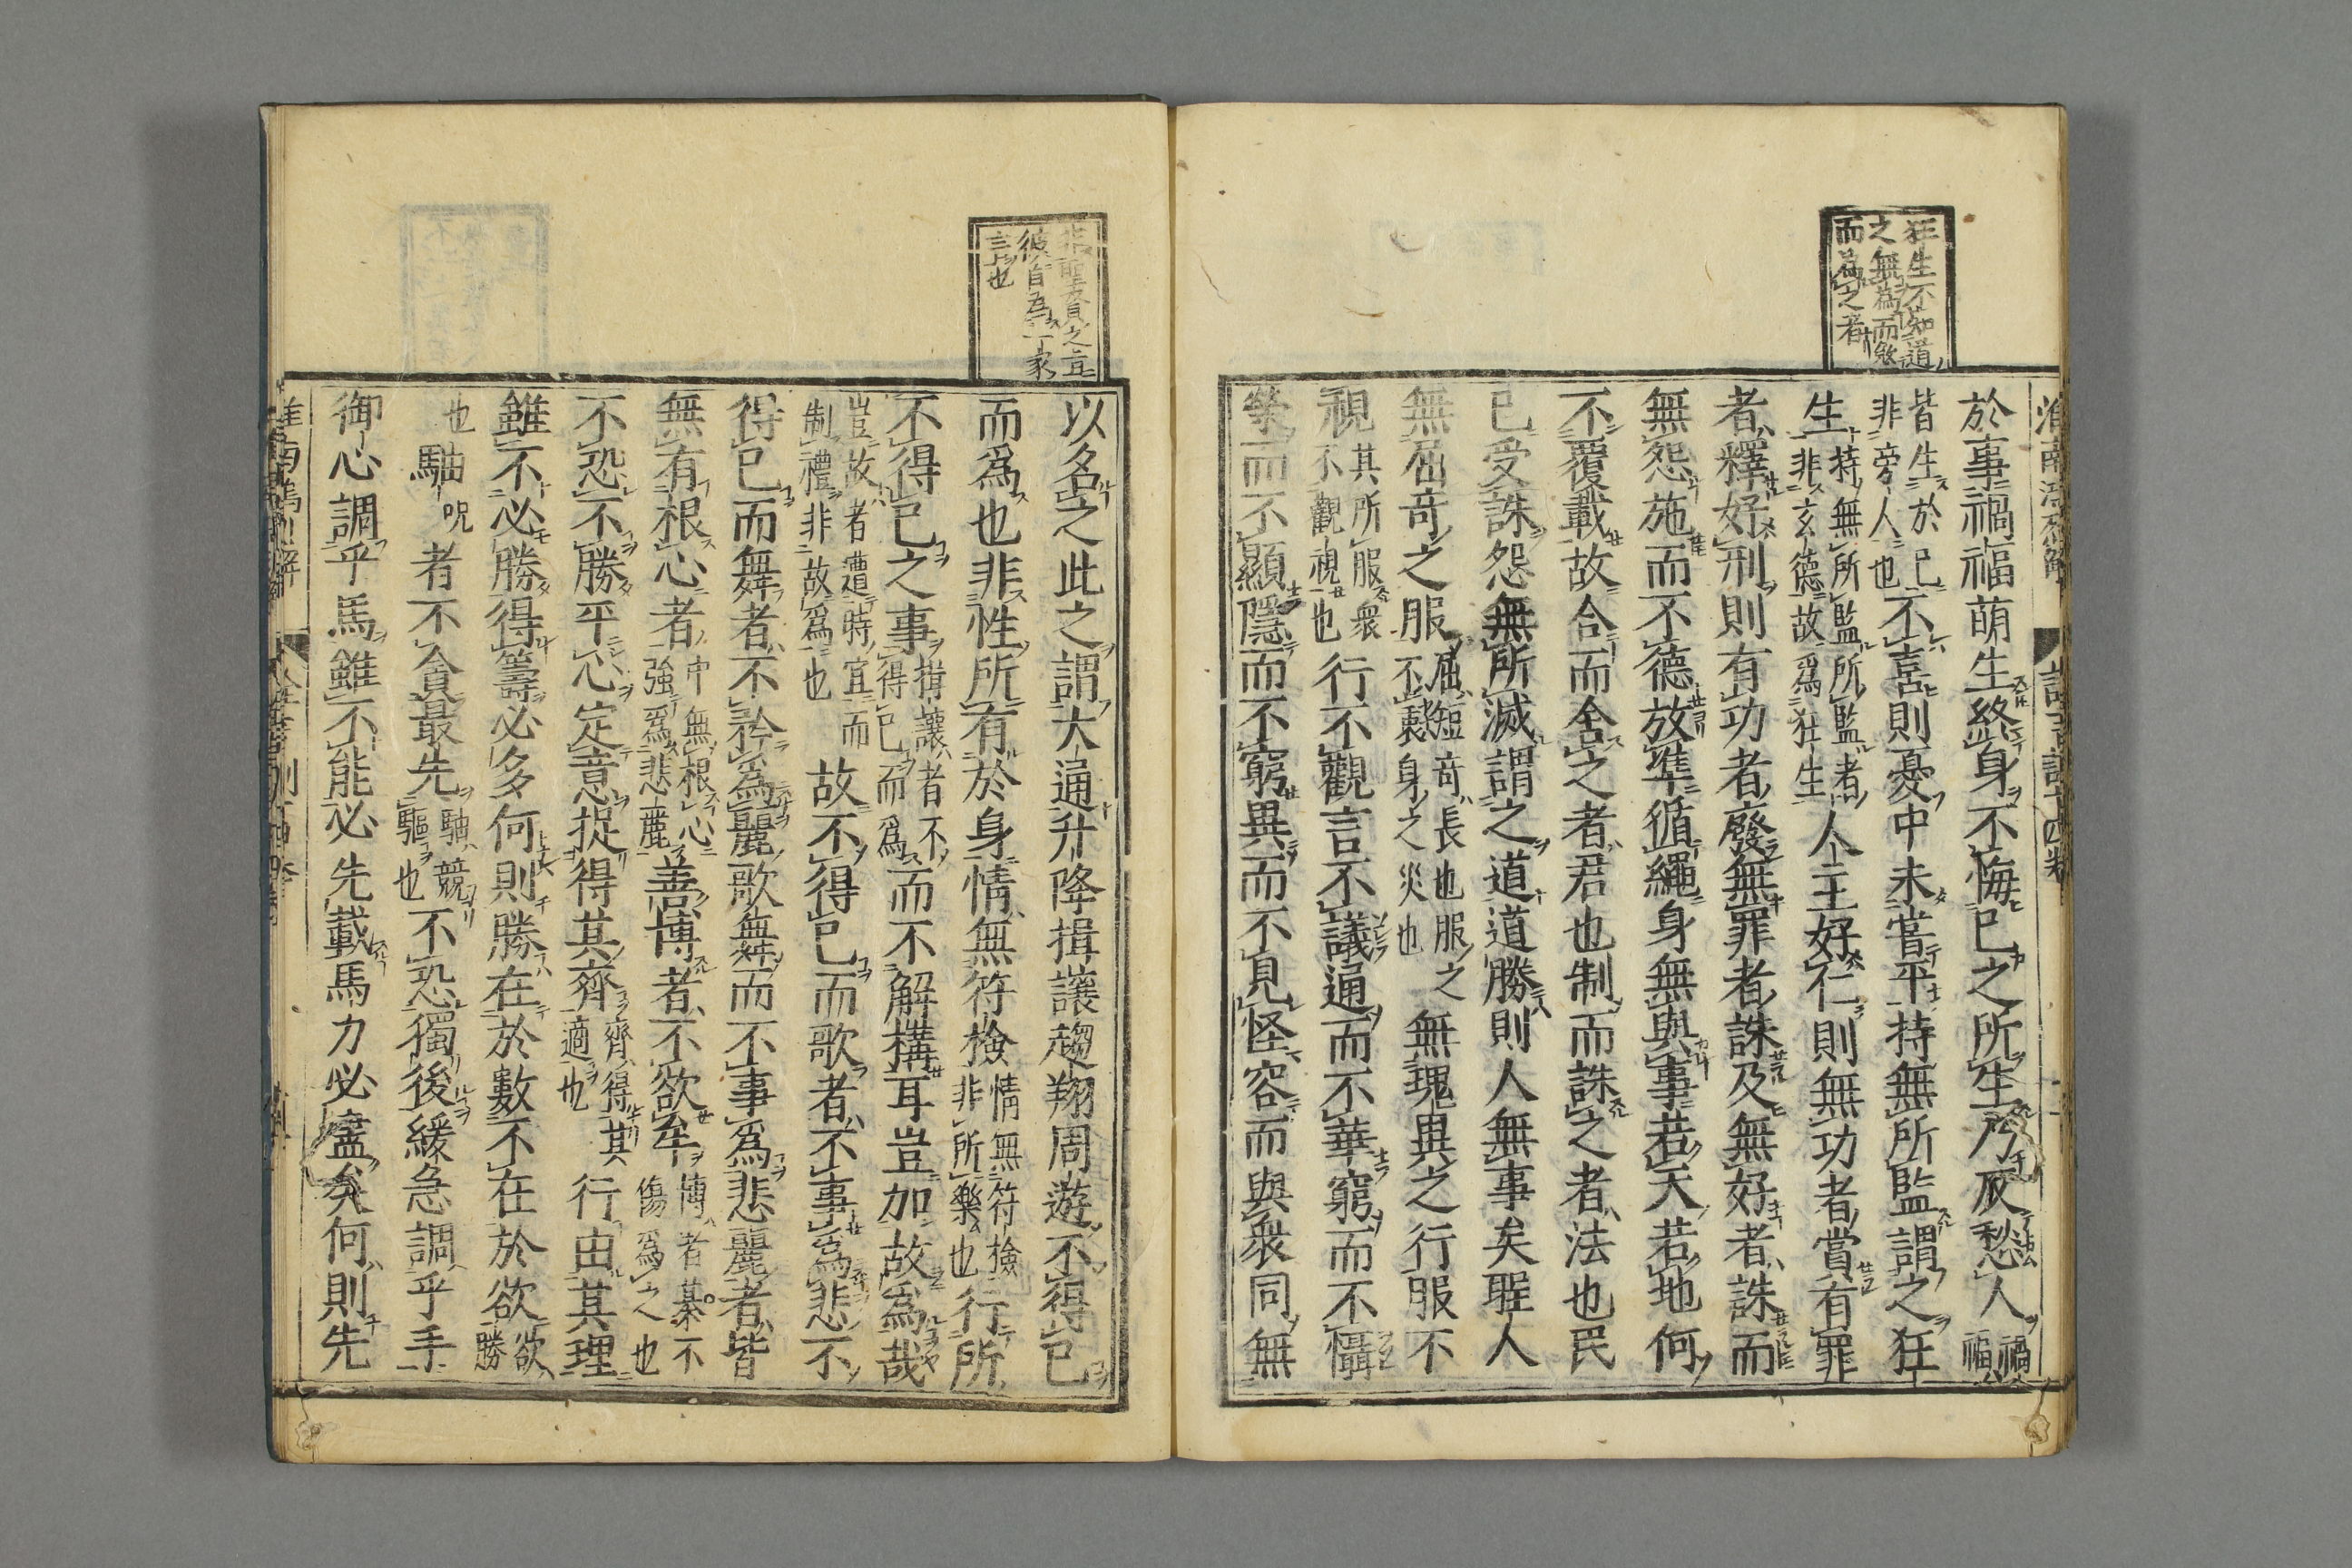 狂生不知道
之無為而煞
而為之者
於事禍福萌生終身不悔已之所生乃反愁人禍福
皆生於已
非旁人也不喜則憂中未嘗平持無所監謂之狂
生持無所監所監者
非玄德故為狂生人主好仁則無功者賞有罪
者釋好刑則有功者廢無罪者誅及無好者誅而
無怨施而不德放準循繩身無與事若天若地何
不覆載故合而舍之者君也制而誅之者法也民
已受誅怨無所滅謂之道道勝則人無事矣聖人
無屈奇之服屈短奇長也服之
不衷身之災也無瑰異之行服不
視其所服衆
不觀視也行不觀言不議通而不華窮而不懾
榮而不顯隱而不窮異而不見怪容而與衆同無
非聖賢之言
彼自為一家
言也
以名之此之謂大通升降揖讓趨翔周遊不得已
而為也非性所有於身情無符檢情無符檢
非所樂也行所
不得已之事揖讓者不
得已而為而不解構耳豈加故為哉
豈故者遭時宜而
制禮非故為也故不得已而歌者不事為悲不
得已而舞者不矜為麗歌舞而不事為悲麗者皆
無有根心者中無根心
強為悲麗善博者不欲牟博者棊不
傷為之也
不恐不勝平心定意捉得其齊齊得其
適也行由其理
雖不必勝得籌必多何則勝在於數不在於欲欲
勝
也䮍呪者不貪最先䮍競
驅也不恐獨後緩急調乎手
御心調乎馬雖不能必先載馬力必盡矣何則先